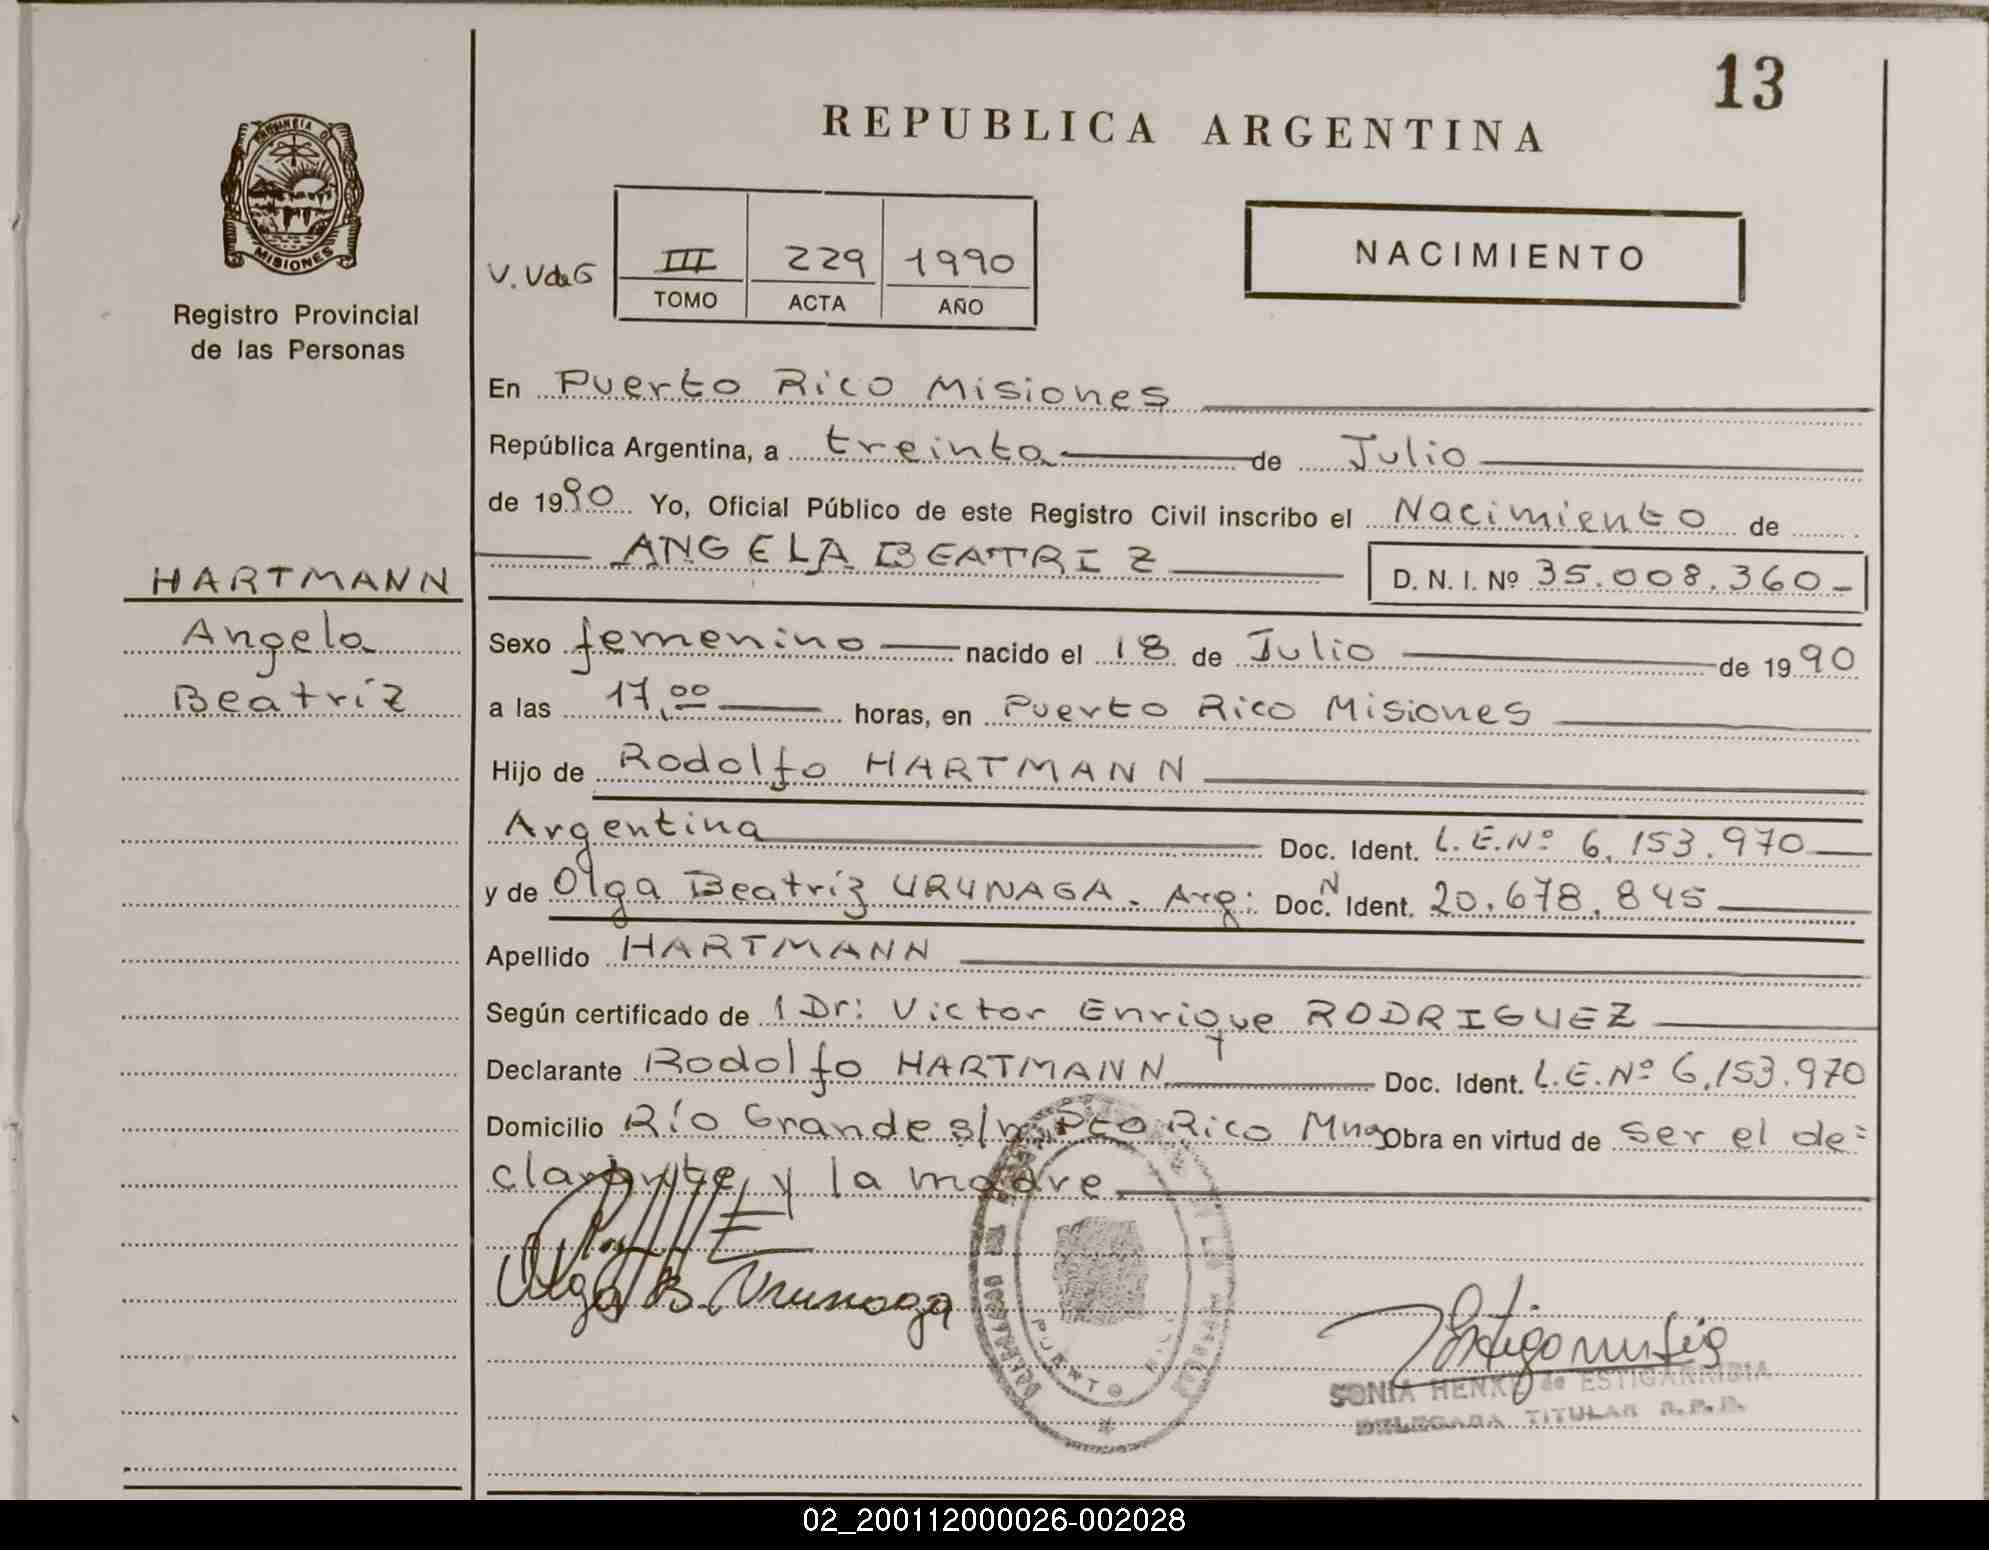 13
REPUBLICA ARGENTINA
PROVINCIA DE
MISIONES
Registro Provincial
de las Personas
V. VdeG
III 229 1990
TOMO ACTA AÑO
NACIMIENTO
En Puerto Rico Misiones
República Argentina, a treinta de Julio
de 1990 Yo, Oficial Público de este Registro Civil inscribo el Nacimiento de
ANGELA BEATRIZ D. N. I. Nº 35.008.360-
HARTMANN
Angela
Beatriz
Sexo femenino nacido el 18 de Julio de 1990
a las 17,00 horas, en Puerto Rico Misiones
Hijo de Rodolfo HARTMANN
Argentina Doc. Ident. L.E.Nº 6.153.970
y de Olga Beatríz URUNAGA. Arg: Doc. N Ident. 20.678.845
Apellido HARTMANN
Según certificado de 1 Dr: Victor Enrique RODRIGUEZ
Declarante Rodolfo HARTMANN Doc. Ident. L.E.Nº 6.153.970
Domicilio Río Grande s/n Pto Rico Mnes Obra en virtud de ser el de=
clarante y la madre
Olga B. Urunaga
PUERTO RICO
SONIA HENKE de ESTIGARRIBIA
DELEGADA TITULAR R.P.P.
02_200112000026-002028